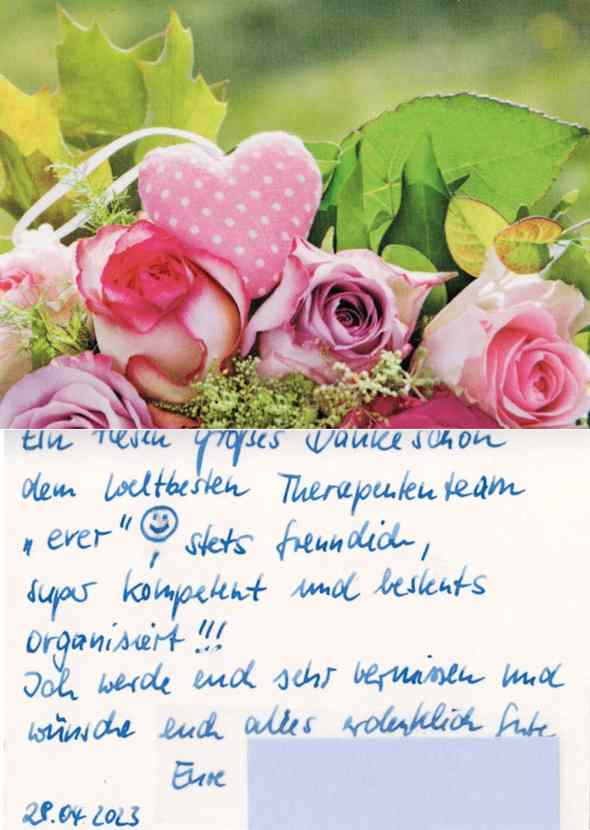 Ein riesen großes Dankeschön
dem weltbesten Therapeutenteam
„ever“, stets freundlich,
super kompetent und bestents
organisiert!!!
Ich werde euch sehr vermissen und
wünsche euch alles erdenklich Gute
Eure
29.04 2023